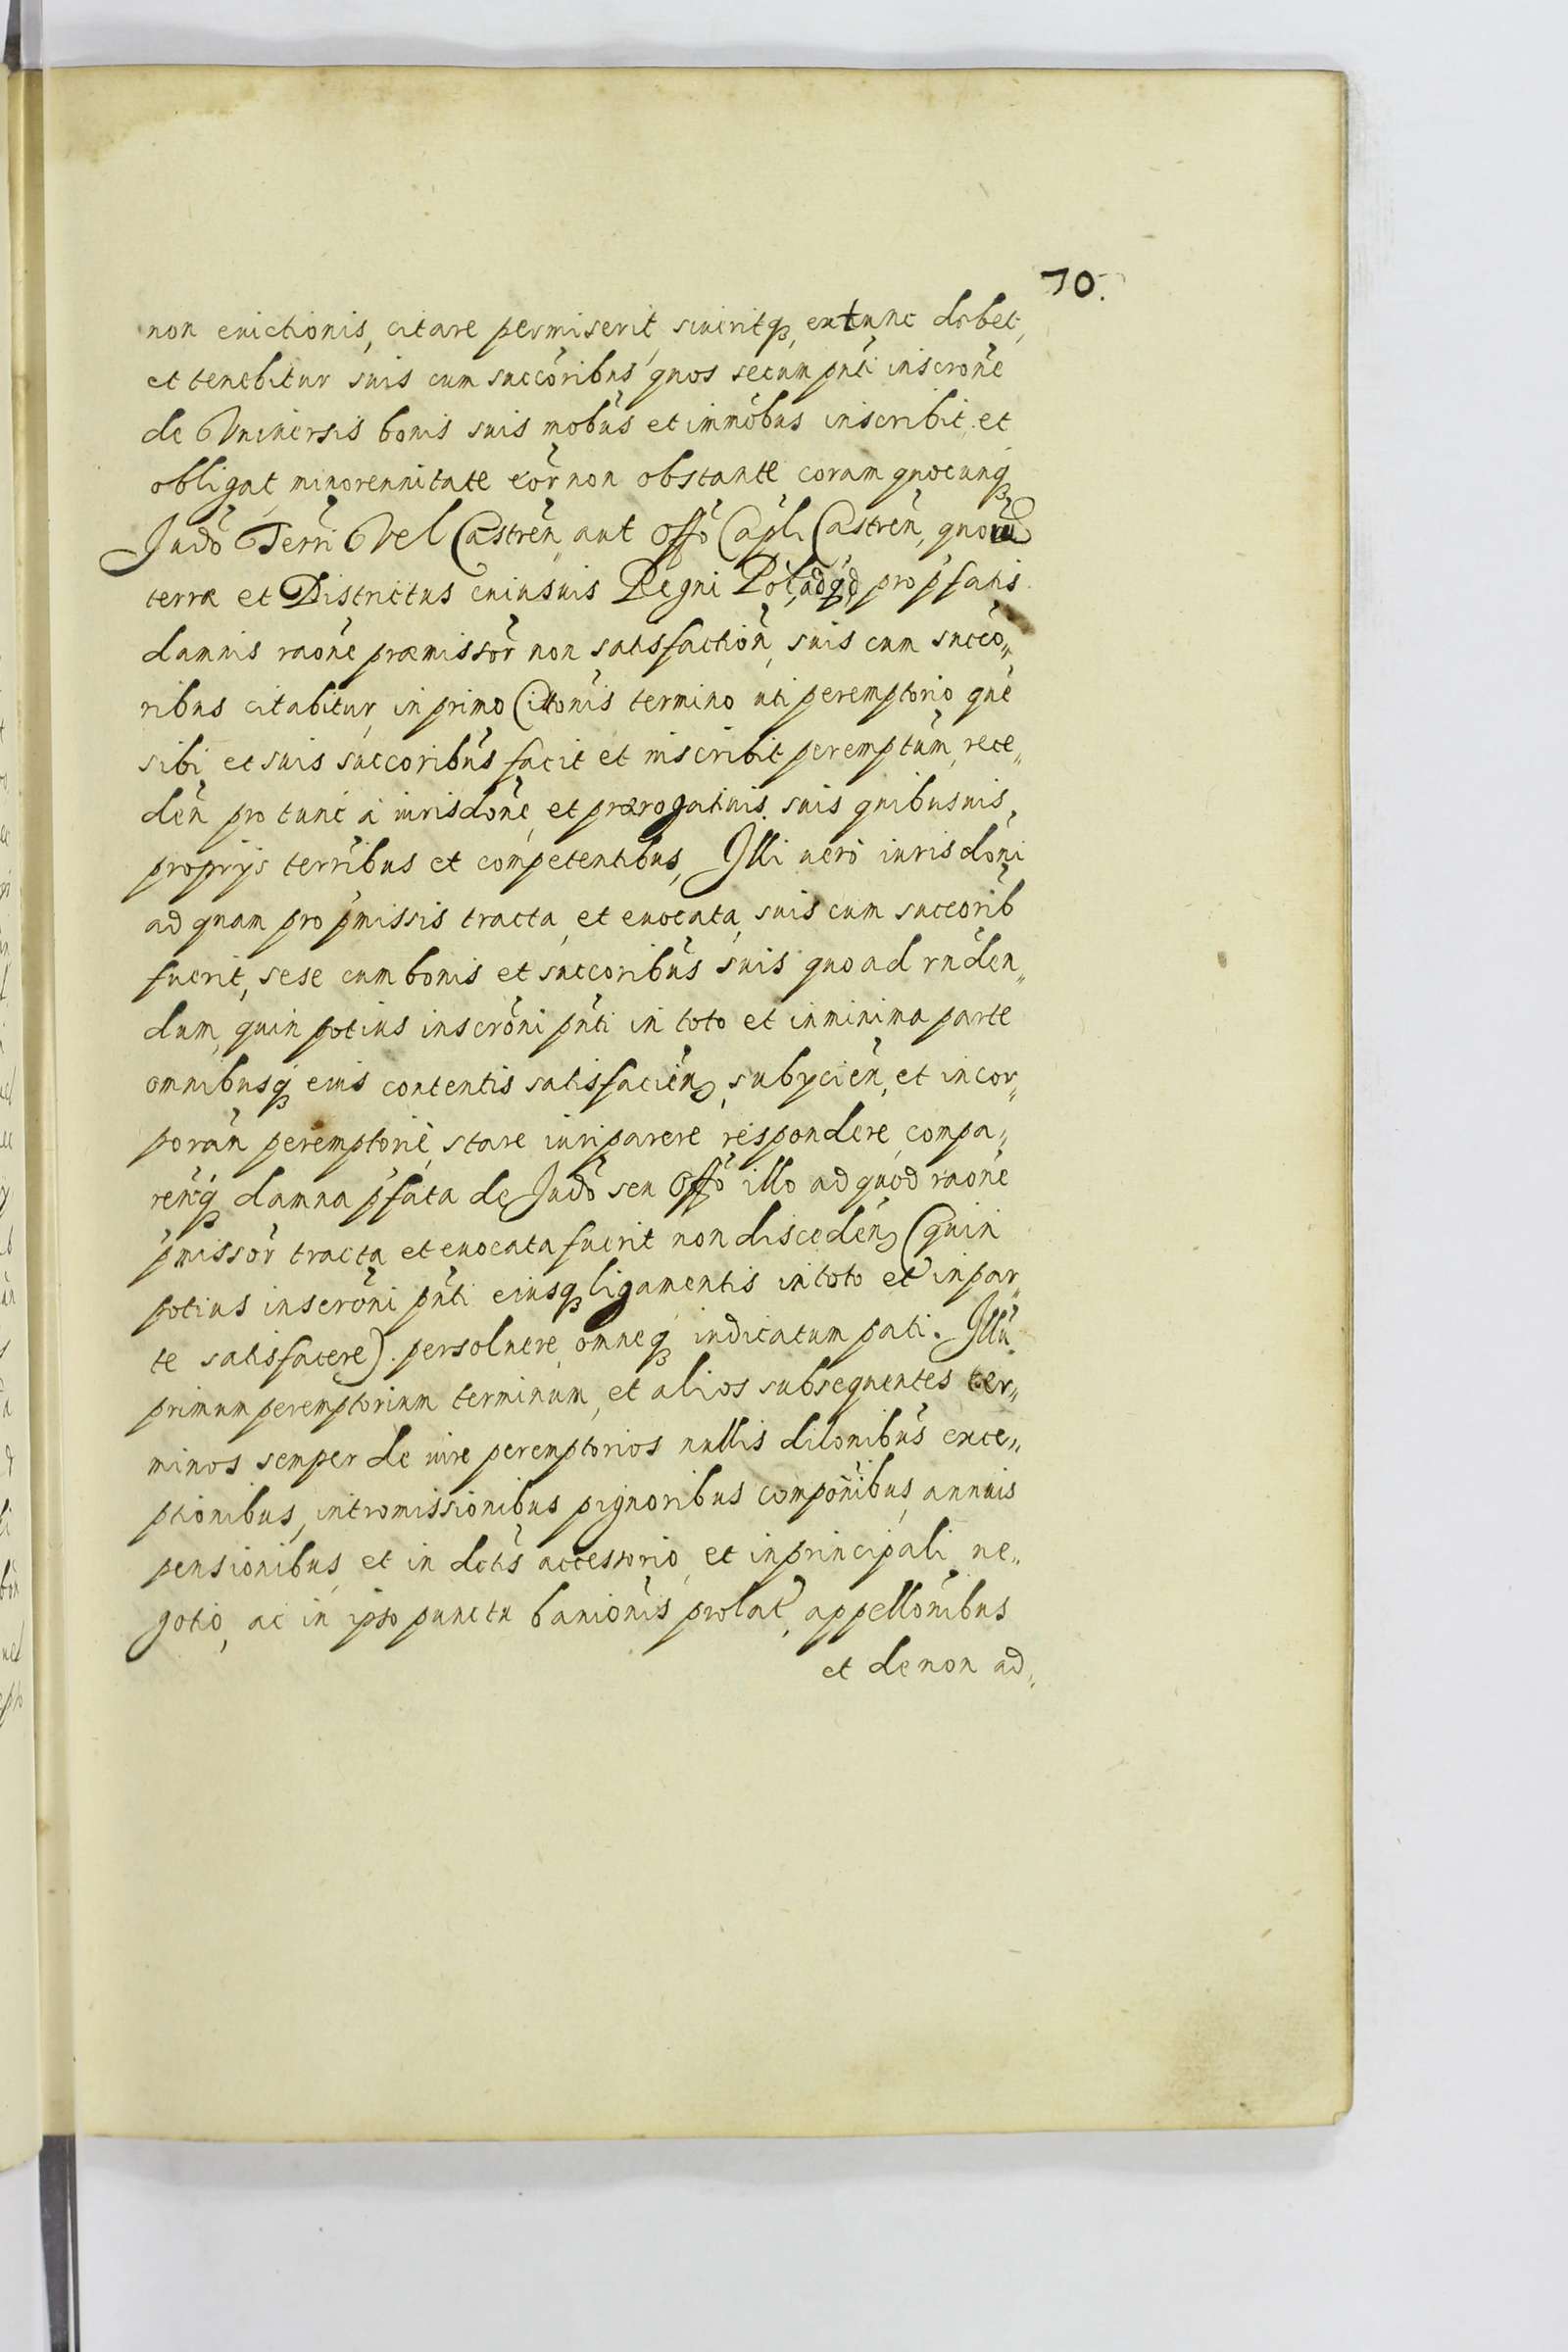 70.
non euictionis, citare permiserit, siueritq, extunc debet,
et tenebitur suis cum succoribus quos secum pnti inscrone
de Vniuersis bonis suis mobus et immobus inscribit et
obligat minorennitate eor non obstante coram quocunq
Judo Terri Vel Castren, aut Offo Capli Castren, quoius
terræ et Districtus cuiusuis Regni Pol, ad qd pro pfatis
damnis raone præmissor non satisfaction, suis cum succo„
ribus citabitur, in primo Cittonis termino uti peremptorio que
sibi et suis succoribus facit et inscribit peremptum, rece„
den pro tunc a iurisdone, et prærogatiuis suis quibusuis,
proprijs terribus et competentibus, Illi uero iurisdoni
ad quam pro pmissis tracta, et euocata, suis cum succorib
fuerit, sese cum bonis et succoribus suis quo ad rnden„
dum, quin potius inscroni pnti in toto et in minima parte
omnibusq eius contentis satisfacien, subycien, et incor„
poran peremptorie, stare iuri parere respondere, compa„
renq damna pfata de Judo seu Offo illo ad quod raone
pmissor tracta et euocata fuerit non disceden, (quin
potius inscroni pnti eiusq ligamentis in toto et in par„
te satisfacere). persoluere, omneq iudicatum pati. Illu
primum peremptorium terminum, et alios subsequentes ter„
minos semper de iure peremptorios nullis dilonibus exce„
ptionibus, intromissionibus pignoribus componibus, annuis
pensionibus, et in dctis accessorio, et in principali ne„
gotio, ac in ipso punctu banionis prolat, appellonibus
et de non ad„